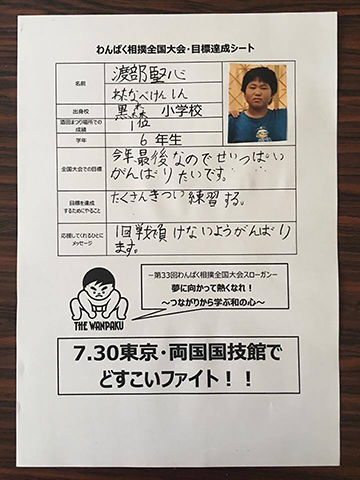 わんぱく相撲全国大会・目標達成シート
名前
渡部堅心
わたなべけんしん
出身校
黒森 小学校
酒田まつり場所での
成績
1位
学年
6 年生
全国大会での目標
今年最後なのでせいいっぱい
がんばりたいです。
目標を達成
するためにやること
たくさんきつい練習する。
応援してくれるひとに
メッセージ
1回戦で負けないようがんばり
ます。
−第33回わんぱく相撲全国大会スローガン−
夢に向かって熱くなれ!
〜つながりから学ぶ和の心〜
THE WANPAKU
7.30東京・両国国技館で
どすこいファイト!!